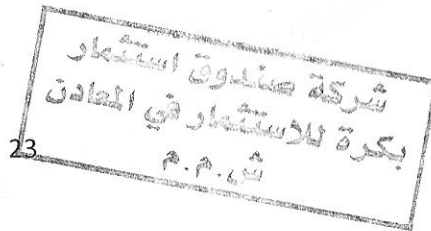 شركة صندوق استثمار
بكرة للاستثمار في المعادن
ش.م.م
23